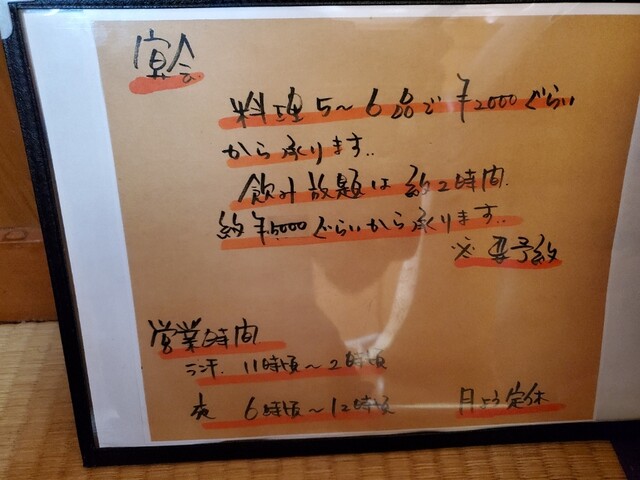 宴会
料理5～6品で¥2000ぐらい
から承ります..
飲み放題は約2時間.
約¥5000ぐらいから承ります..
※要予約
営業時間
ランチ. 11時頃～2時頃
夜 6時頃～12時頃 月よう定休